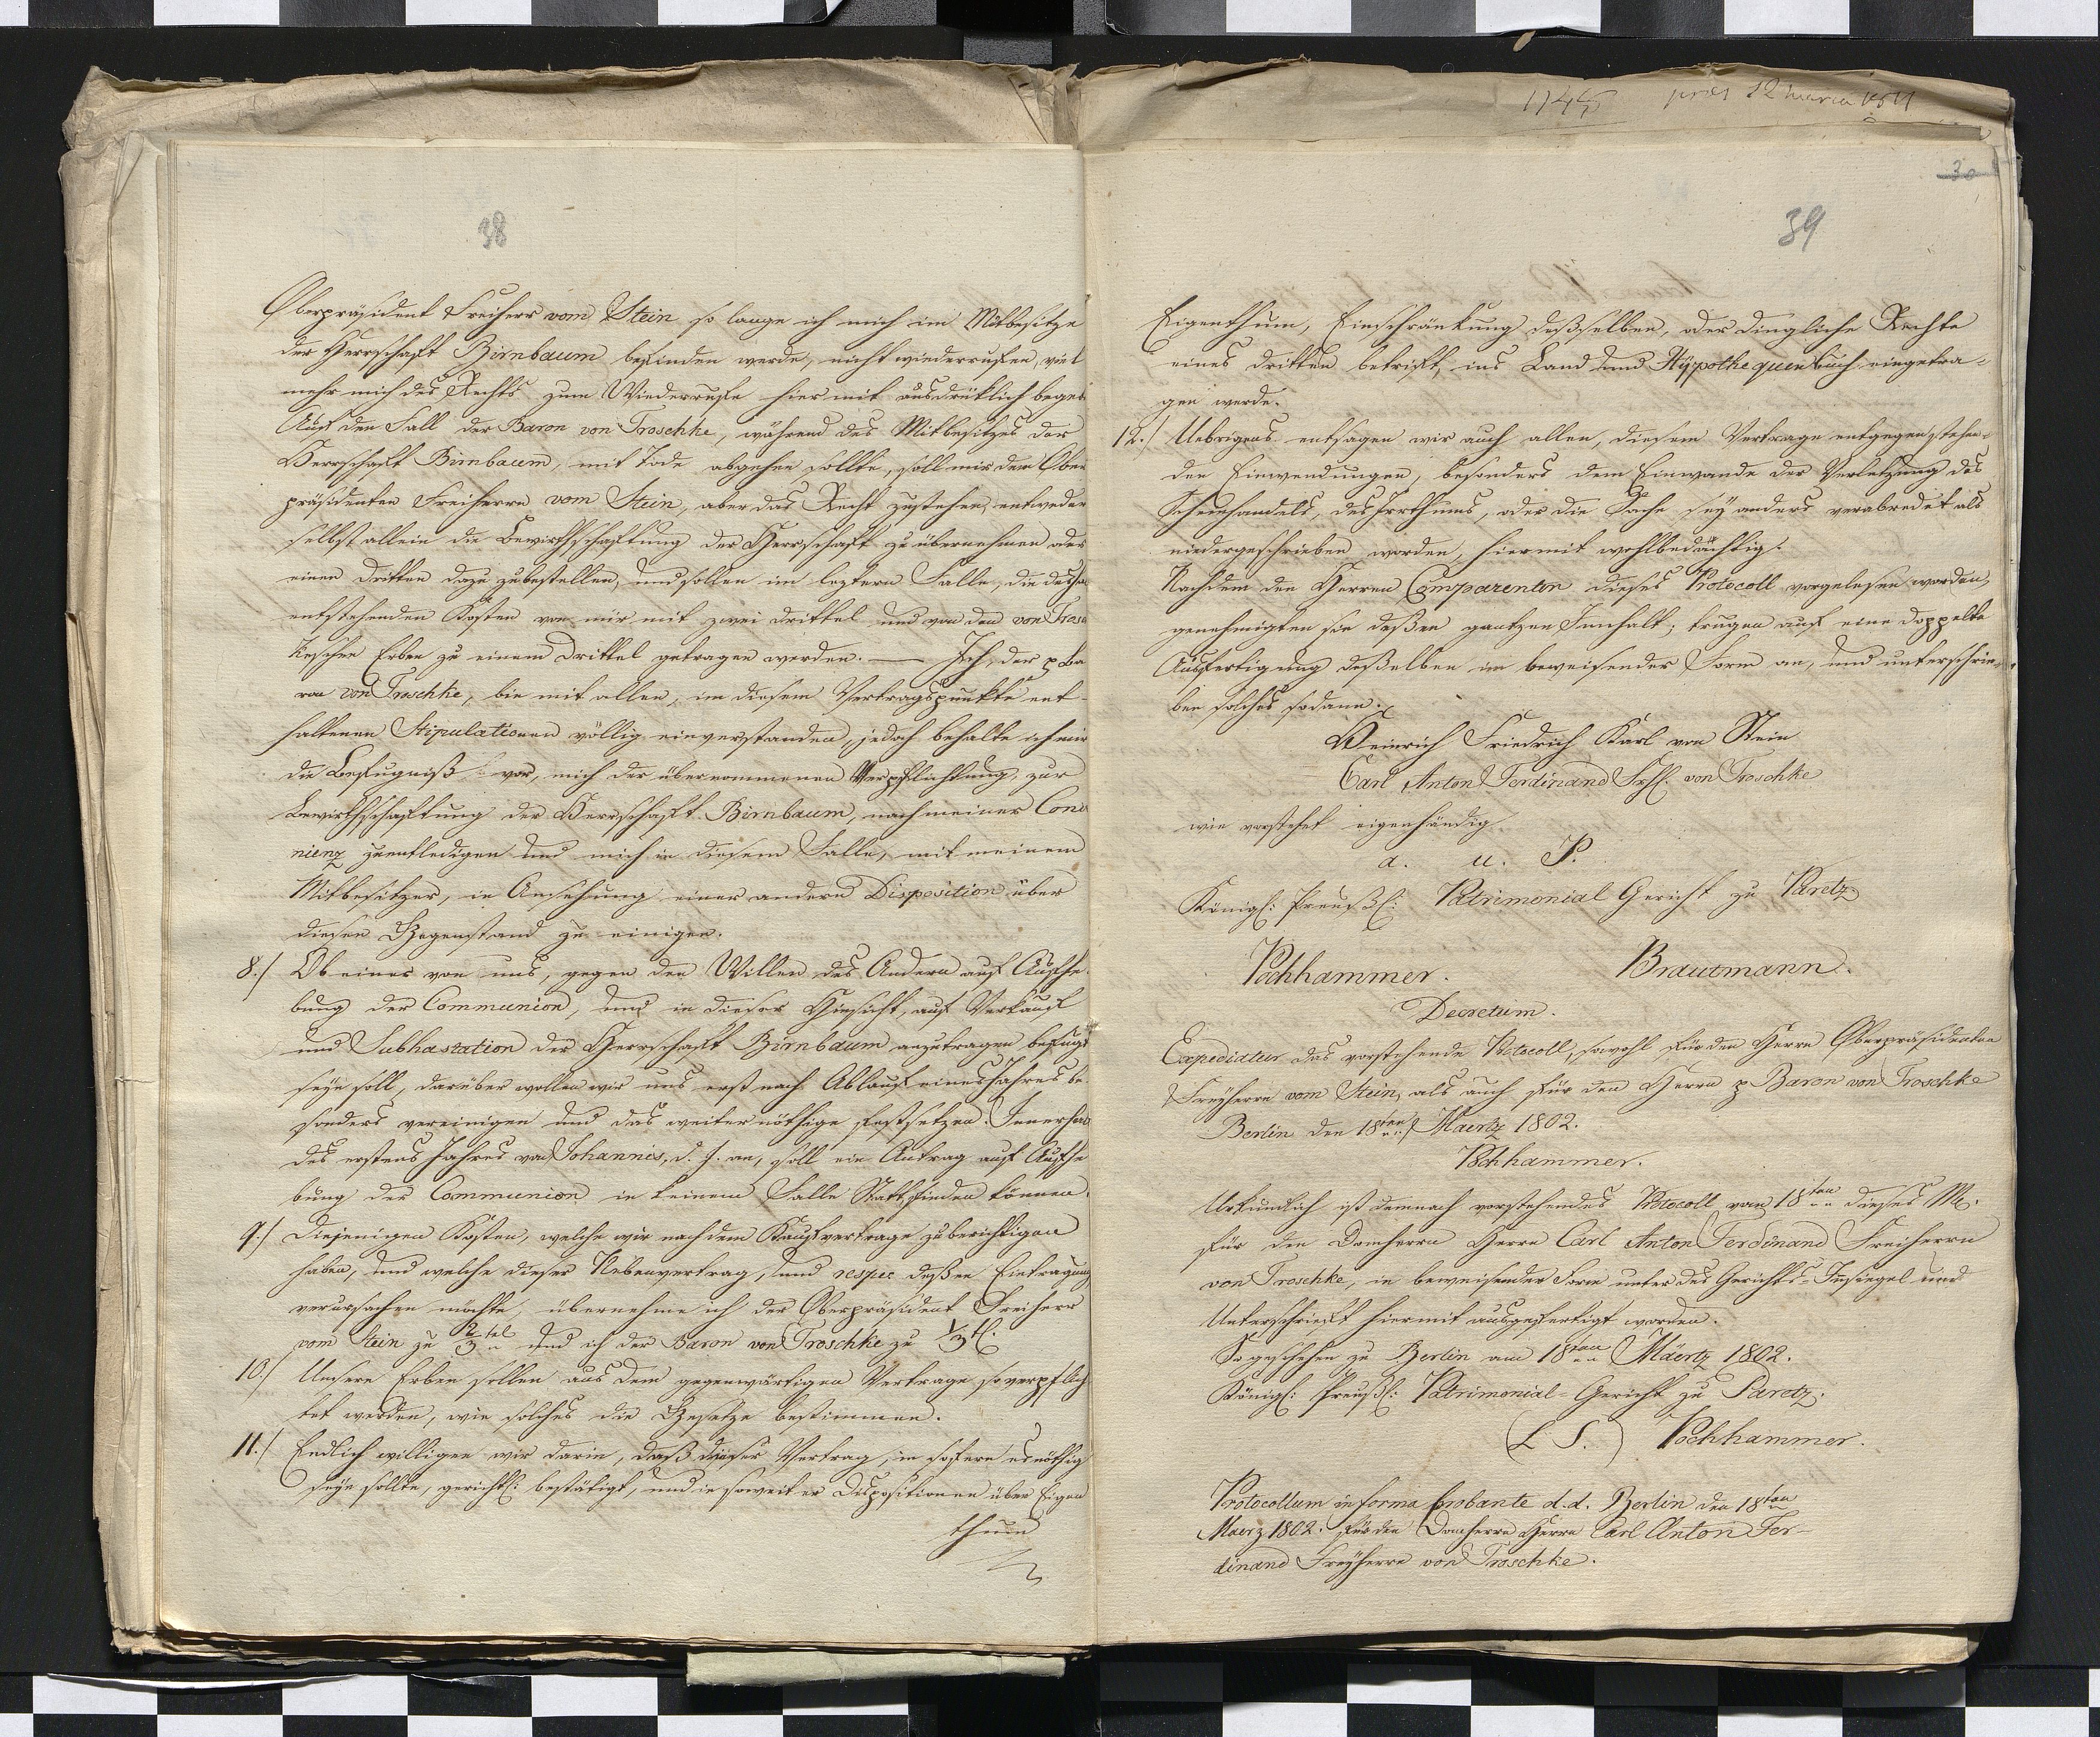 38
Oberpräsident Freiherr vom Stein so lange ich mich im Mitbesitze
der Herrschaft Birnbaum befinden werde, nicht wiederrufen, viel
mehr mich des Rechts zum Wiederrufe hiermit ausdrüklich begebe
Auf den Fall der Baron von Troschke, während des Mitbesitzes der
Herrschaft Birnbaum, mit Tode abgehen sollte, soll mir dem Ober
präsidenten Freiherrn vom Stein, aber das Recht zustehen, entweder
selbst allein die Bewirthschaftung der Herrschaft zu übernehmen oder
einen Dritten dazu zu bestellen, und sollen im leztern Falle, die deshal
entstehenden Kosten von mir mit zwei Drittel und von den von Trosch
keschen Erben zu einem Drittel getragen werden. — Ich, der p Ba
ron von Troschke, bin mit allen, in diesem Vertragspunkte ent-
haltenen Stipulationen völlig einverstanden, jedoch behalte ich mir
die Befugniß vor, mich der übernommenen Verpflichtung, zur
Bewirthschaftung der Herrschaft Birnbaum, nach meiner Conv
nienz zu entledigen und mich in diesem Falle, mit meinem
Mitbesitzer, in Ansehung einer andern Disposition über
diesen Gegenstand zu einigen.
8./ Ob einer von uns, gegen den Willen des Andern auf Aufhe
bung der Communion, und in dieser Hinsicht, auf Verkauf
und Subhastation der Herrschaft Birnbaum anzutragen befugt
seyn soll, darüber wollen wir uns erst nach Ablauf eines Jahres be
sonders vereinigen und das weiter nöthige festsetzen. Innerhalb
des erstens Jahres von Johannis, d. J. an, soll ein Antrag auf Aufhe
bung der Communion in keinem Falle Statt finden können.
9./ Diejenigen Kosten, welche wir nach dem Kaufvertrage zu berichtigen
haben, und welche dieser Nebenvertrag, und respec deßen Eintragung
verursachen möchte, übernehme ich der Oberpräsident Freiherr
vom Stein zu 2/3 tel und ich der Baron von Troschke zu 1/3 tl.
10./ Unsere Erben sollen aus dem gegenwärtigen Vertrage so verpflich
tet werden, wie solches die Gesetze bestimmen.
11./ Endlich willigen wir darin, daß dieser Vertrag, in sofern es nöthig
seyn sollte, gerichtl: bestätigt, und in soweit er Dispositionen über Eigen
thum
1145 präs 12
30
39
Eigenthum, Einschränkung desselben, oder dingliche Rechte
eines dritten betrift, ins Land und Hypothequenbuch eingetra-
gen werde.
12./ Uebrigens entsagen wir auch allen, diesem Vertrage entgegen stehen-
den Einwendungen, besonders dem Einwande der Verletzung des
Scheinhandels, des Irrthums, oder die Sache sey anders verabredet als
niedergeschrieben worden, hiermit wohlbedächtig.
Nachdem den Herren Comparenten dieses Protocoll vorgelesen worden,
genehmigten sie deßen gantzen Innhalt, trugen auf eine doppelte
Ausfertigung desselben in beweisender Form an, und unterschrie-
ben solches sodann.
Heinrich Friedrich Karl vom Stein
Carl Anton Ferdinand Frhl. von Troschke
wie vorstehet eigenhändig
a. u. S.
Königl: Preußl: Patrimonial Gericht zu Paretz
Pochhammer. Brautmann.
Decretum.
Expediatur das vorstehende Protocoll, sowohl für den Herrn Oberpräsidenten
Freyherrn vom Stein, als auch für den Herrn p Baron von Troschke
Berlin den 18ten Maertz 1802.
Pochhammer.
Urkundlich ist demnach vorstehendes Protocoll vom 18ten dieses M.
für den Domherrn Herrn Carl Anton Ferdinand Freiherrn
von Troschke, in beweisender Form unter des Gerichts-Insiegel und
Unterschrieft hiermit ausgefertigt worden.
So geschehen zu Berlin am 18ten Märtz 1802.
Königl: Preußl: Patrimonial-Gericht zu Paretz.
(L S.) Pochhammer.
Protocollum in forma probante d.d. Berlin den 18ten
Maerz 1802. für den Domherrn Herrn Carl Anton Fer-
dinand Freyherrn von Troschke.